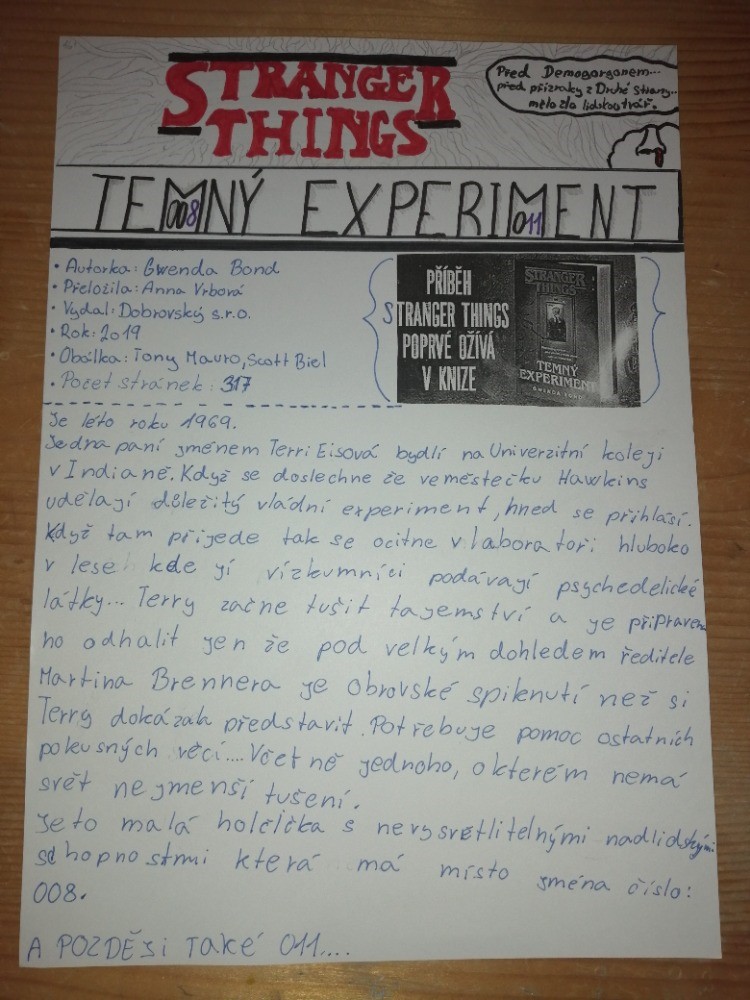 STRANGER
THINGS
Před Demogorgonem...
před přízraky z Druhé Strany...
mělo zlo lidskou tvář.
TEMNÝ EXPERIMENT
008
011
• Autorka: Gwenda Bond
• Přeložila: Anna Vrbová
• Vydal: Dobrovský s.r.o.
• Rok: 2019
• Obálka: Tony Mauro, Scott Biel
• Počet stránek: 317
PŘÍBĚH
STRANGER THINGS
POPRVÉ OŽÍVÁ
V KNIZE
STRANGER
THINGS
TEMNÝ
EXPERIMENT
GWENDA BOND
Je léto roku 1969.
Jedna paní jménem Terri Eisová bydlí na Univerzitní koleji
v Indianě. Když se doslechne že veměstečku Hawkins
udělají důležitý vládní experiment, hned se přihlásí.
Když tam přijede tak se ocitne v laboratoři hluboko
v lese kde jí vízkumníci podávají psychedelické
látky... Terry začne tušit tajemství a je připravena
ho odhalit jen že pod velkým dohledem ředitele
Martina Brennera je obrovské spiknutí než si
Terry dokázala představit. Potřebuje pomoc ostatních
pokusných věcí.... Včetně jednoho, o kterém nemá
svět nejmenší tušení.
Je to malá holčička s nevysvětlitelnými nadlidskými
schopnostmi která má místo jména číslo:
008.
A POZDĚJI TAKÉ 011....